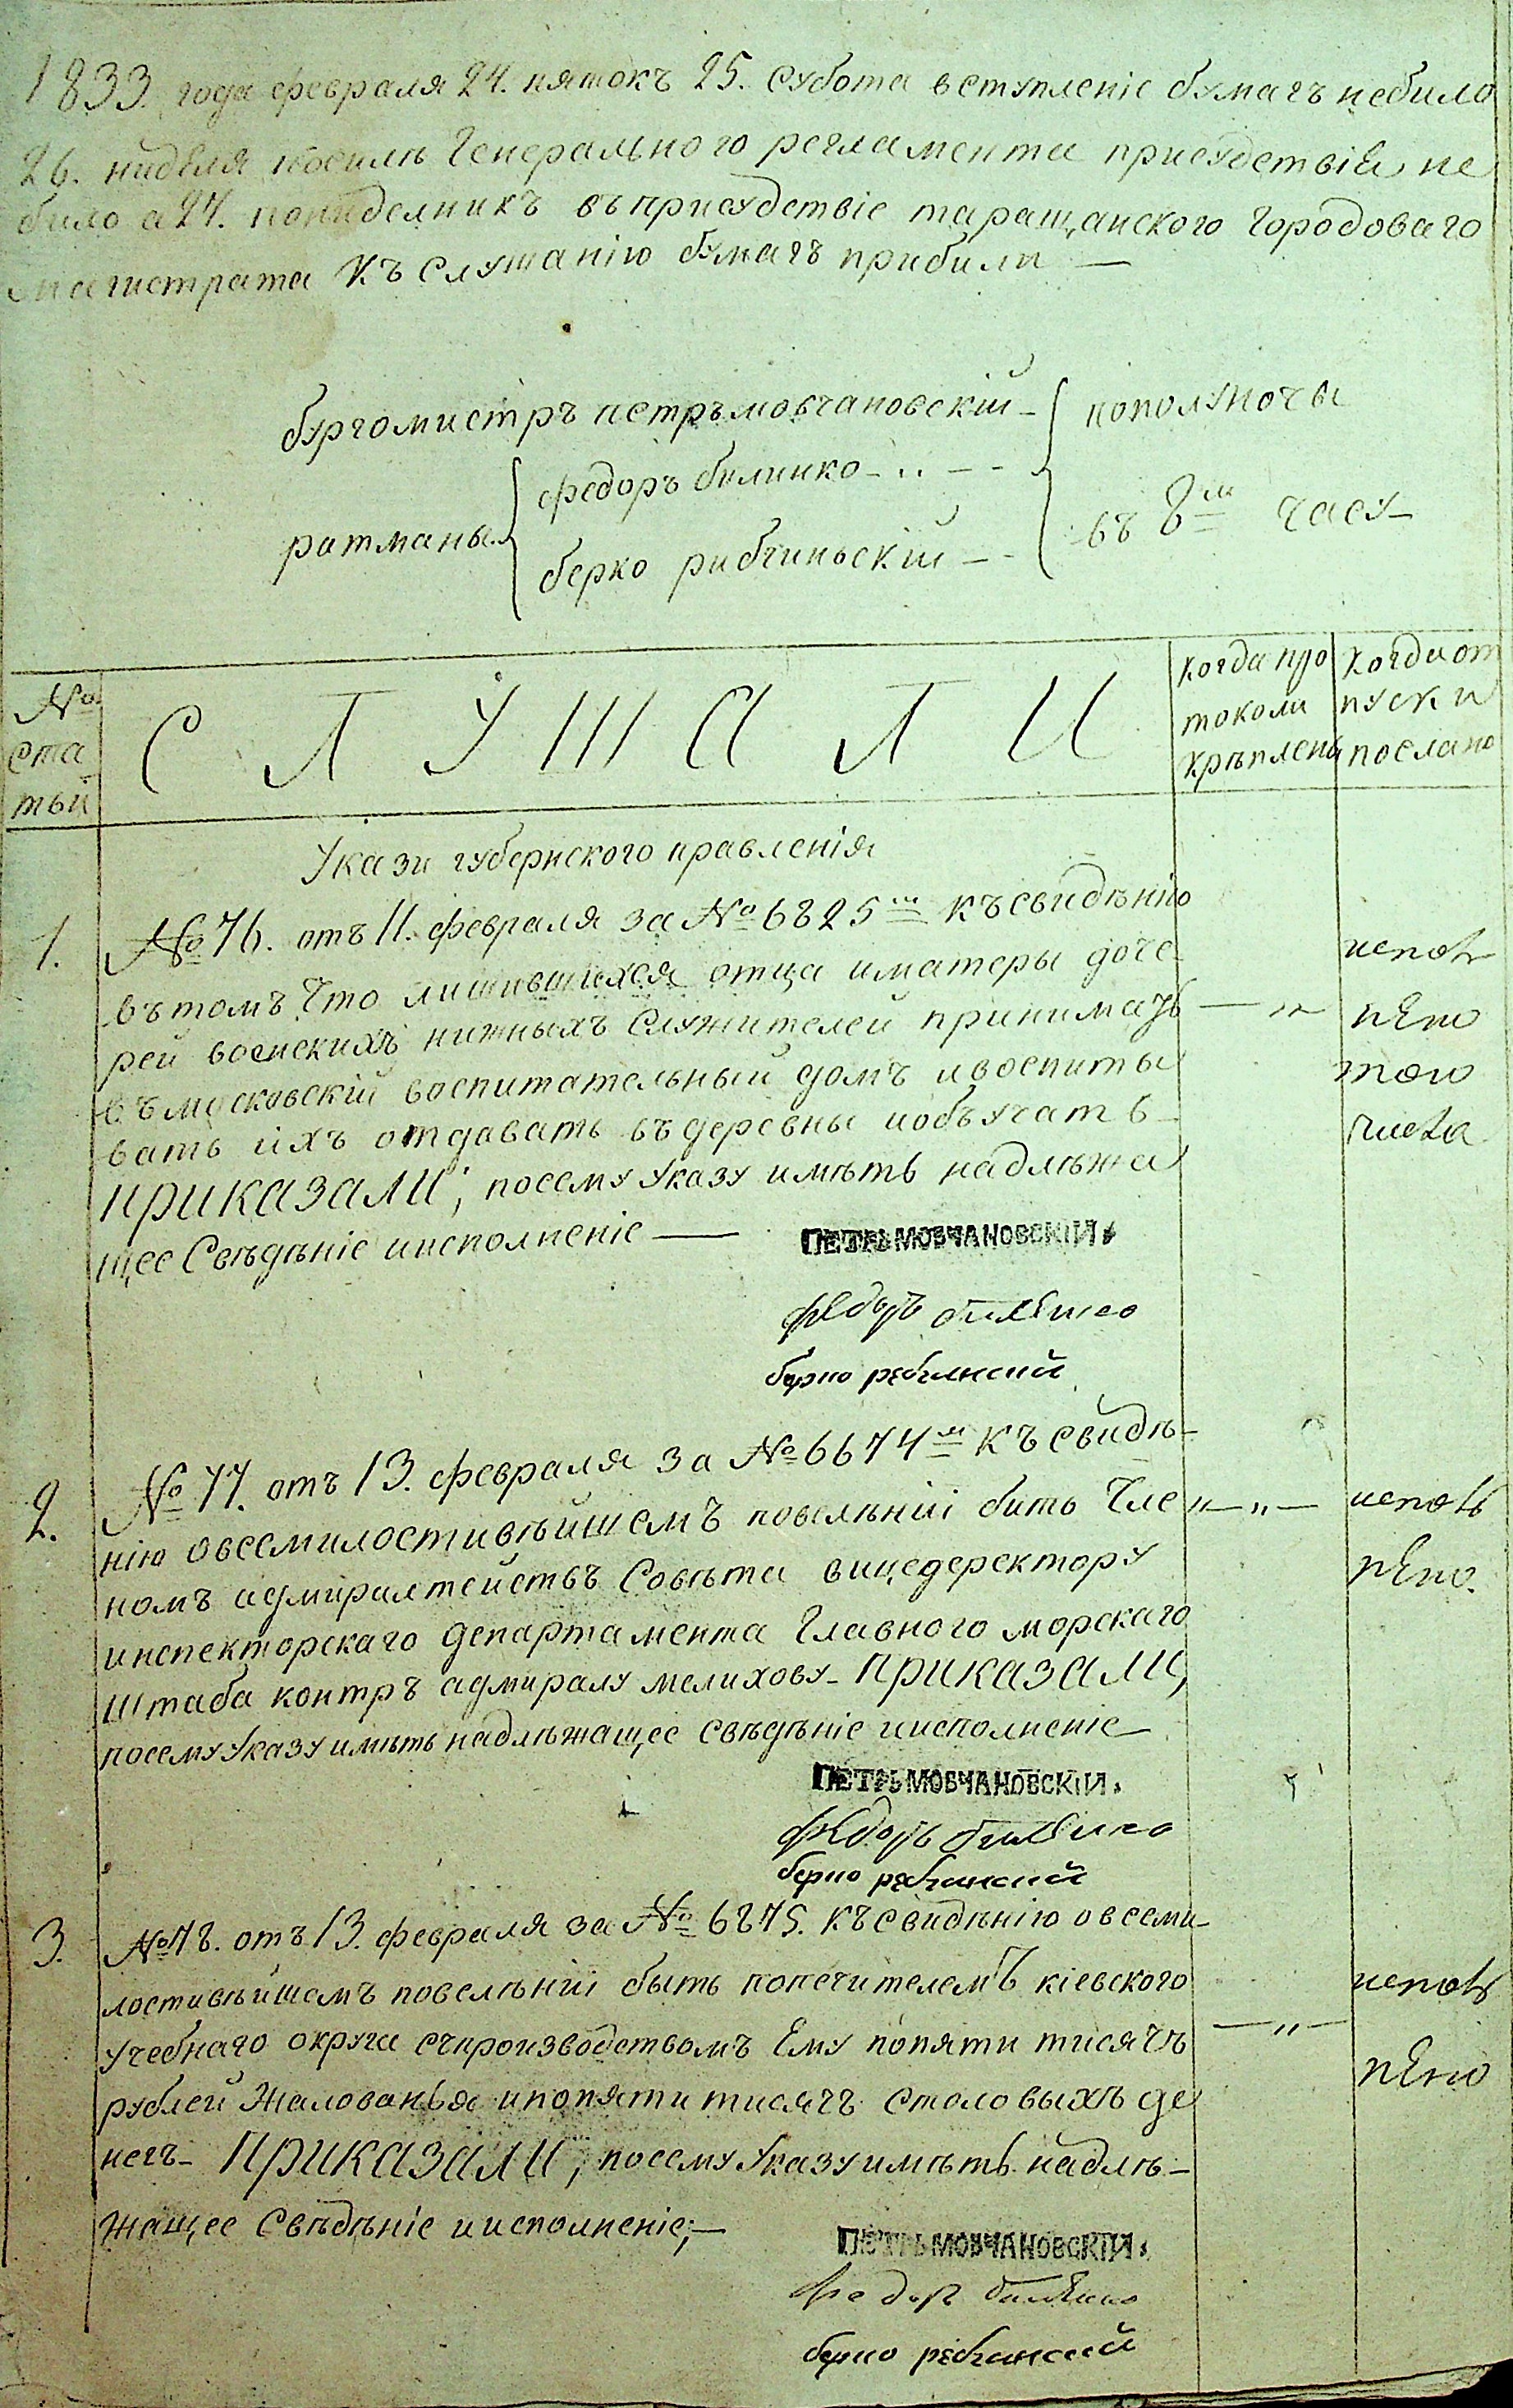 1833. года февраля 24. пятокъ 25. Субота вступленіе бумагъ небило
26. нидѣля посилѣ Генерального регламента присудствій не
било а 27. понидельникъ въприсудствіе таращанского Городоваго
магистрата Къ Слушанію бумагъ прибили —
бургомистръ петръ мовчановскій — пополуночи
ратманы федоръ билинко — въ 8м часу —
берко рибчиньскій —
№ СЛУШАЛИ Когда про Когда от
ста токоли пуски
тьй Крѣплены послано
Укази губернского правленія
1. № 76. отъ 11. февраля за № 6825м Късвидѣнію
въ томъ Что лишившихся отца иматеры доче- исполъ
рей воинскихъ нижныхъ Служителей принимать — „ — нено
въ московскій воспитательный домъ ивоспиты того
вать ихъ отдавать въдеревны иобъучать — числа
приказали; посему Указу имѣть надлѣжа
щее Свѣдѣніе иисполненіе —
ПЕТРЬ МОВЧАНОВСКІЙ
федоръ билинко
берко рибчинский
2. № 77. отъ 13. февраля за № 6674м Къ свидѣ-
нію овсемилостивѣйшемъ повелѣніи бить Чле „ — „ — исполъ
номъ адмиралтействъ Совѣта вицедеректору нено.
инспекторскаго департамента Главного морскаго
Штаба контръ адмиралу мелихову — приказали,
посему Указу имѣть надлѣжащее свѣдѣніе иисполненіе —
ПЕТРЬ МОВЧАНОВСКІЙ
федоръ билинко
берко рибчанский
3. № 78. отъ 13. февраля за № 6875. Късвидѣнію овсеми-
лостивѣйшемъ повелѣніи быть попечителемъ кіевского исполъ
учебнаго округа съпроизводствомъ Ему попяти тисячъ — „ —
рублей Жалованья ипопяти тисячъ Столовыхъ де нено
негъ — приказали, посему Указу имѣть надлѣ-
жащее Свѣдѣніе иисполненіе; —
ПЕТРЬ МОВЧАНОВСКІЙ
федоръ билинко
берко рибчанский